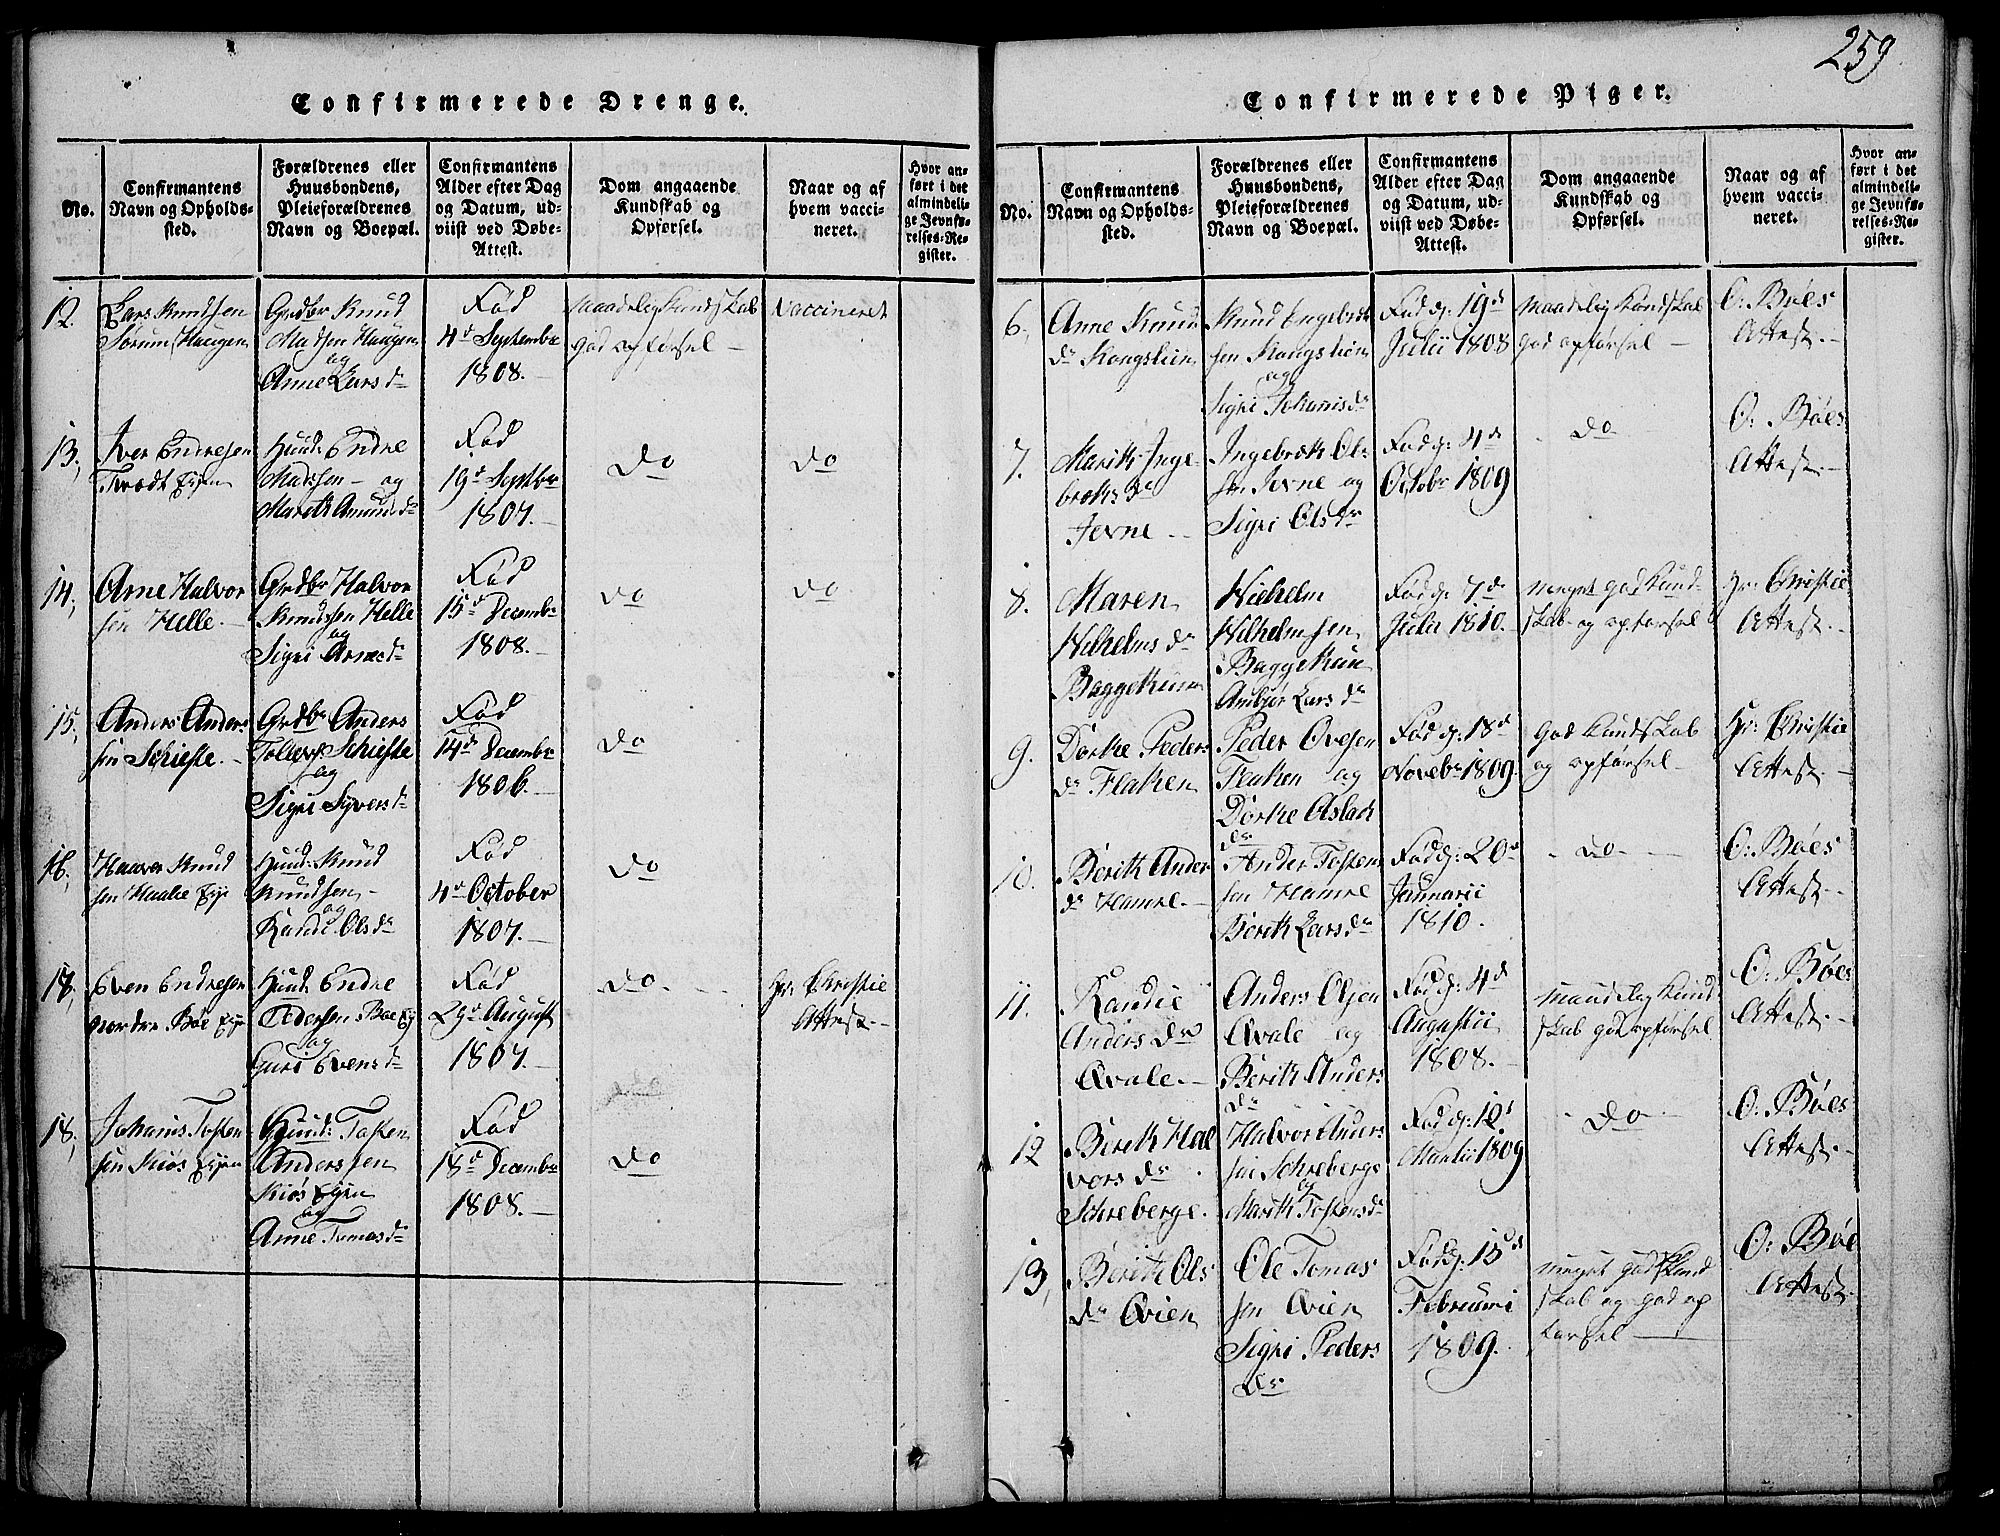 259
Confirmerede Drenge.
No.
Confirmantens
Navn og Opholds-
sted.
Forældrenes eller
Huusbondens,
Pleieforældrenes
Navn og Boepæl.
Confirmantens
Alder efter Dag
og Datum, ud-
viist ved Døbe-
Attest.
Dom angaaende
Kundskab og
Opførsel.
Naar og af
hvem vacci-
neret.
Hvor an-
ført i det
almindeli-
ge Jevnfø-
relses-Re-
gister.
12.
Lars Knudsen
Sørum Haugen
Grdbr Knud
Madsen Haugen
og
Anne Larsdr
Fød
4d September
1808.
Maadelig Kundskab
god opførsel
Vaccineret
13,
Iver Endresen
Tvedt Ejen
Huusd: Endre
Madssen og
Marith Amundsdr
Fød
19d Septbr
1807.
Do
Do
14,
Arne Halvor
sen Helle
Grdbr Halvor
Knudsen Helle
og
Sigri Arnesdr
Fød
15d Decembr
1808.
Do
Do
15,
Anders Anders
sen Schieste
Grdbr Anders
Tollefs: Schieste
og
Sigri Syversdr
Fød
14d Decembr
1806.
Do
16,
Haaver Knud
sen Haalie Eje
Huusd: Knud
Knudsen
og
Randi Olsdr
Fød
4d October
1807.
Do
17,
Even Endresen
nordre Bøe Eje
Huusd: Endre
Pedersen Bøe Ej
og
Guri Evensdr
Fød
29d August
1807.
Do
Hr: Christie
Attest.
18,
Johanis Tosten
sen Kiøs Ejen
Huusd: Tosten
Anderssen
Kiøs Ejen
og
Anne Tomasdr
Fød
18d Decembr
1808.
Do
Confirmerede Piger.
No.
Confirmantens
Navn og Opholds-
sted.
Forældrenes eller
Huusbondens,
Pleieforældrenes
Navn og Boepæl.
Confirmantens
Alder efter Dag
og Datum, ud-
viist ved Døbe-
Attest.
Dom angaaende
Kundskab og
Opførsel.
Naar og af
hvem vacci-
neret.
Hvor an-
ført i det
almindeli-
ge Jevnfø-
relses-Re-
gister.
6,
Anne Knud
dr Kongslien
Knud Engebret
sen Kongslien
og
Sigri Johanisdr
Født 19d
Julii 1808
Maadelig Kundskab
god opførsel
O: Bøes
Attest.
7.
Marith Inge
brets dr
Jevne
Ingebreth Ols
sen Jevne og
Sigri Olsdr
Født 4d
Octobr 1809
Do
O: Bøes
Attest.
8.
Maren
Wilhelms dr
Baggethun
Wilhelm
Wilhelmsen
Baggethun
Ambjør Larsdr
Født 7de
Julii 1810.
Meget god Kund-
skab og opførsel
Hr: Christie
Attest.
9.
Dorthe Peders
dr Flaten
Peder Ovesen
Flaten og
Dorthe Aslak
dr
Født 18d
Novebr 1809.
God Kundskab
og opførsel
Hr: Christie
Attest.
10.
Berith Anders
dr Hamre
Ander Tosten
sen Hamre
Berith Larsdr
Født 20d
Januarii
1810.
Do
O: Bøes
Attest.
11.
Randie
Anders dr
Qvale.
Anders Olsen
Qvale og
Berith Anders
dr
Født 4d
Augustii
1808.
Maadelig Kund
skab god opførsel
O: Bøes
Attest.
12
Berith Hal
vors dr
Schreberge.
Halvor Anders
sen Schreberge
og
Marith Tostensdr
Født 12d
Martii 1809
Do
O: Bøes
Attest.
13,
Berith Ols
dr Qvien
Ole Tomas
sen Qvien
Sigri Peders
dr
Født 15d
Februarii
1809.
meget god Kund
skab og god op
førsel
O: Bøe
Attest.